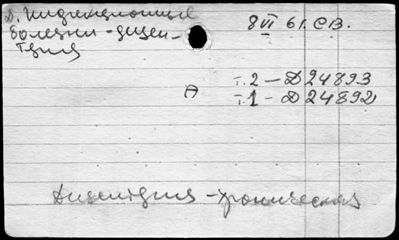 Д. Инфекционные
болезни - дизен-
терия
8 VI 61. СВ.
т. 2 — Д 24893
А
т. 1 - Д 24892
Дизентерия - хроническая